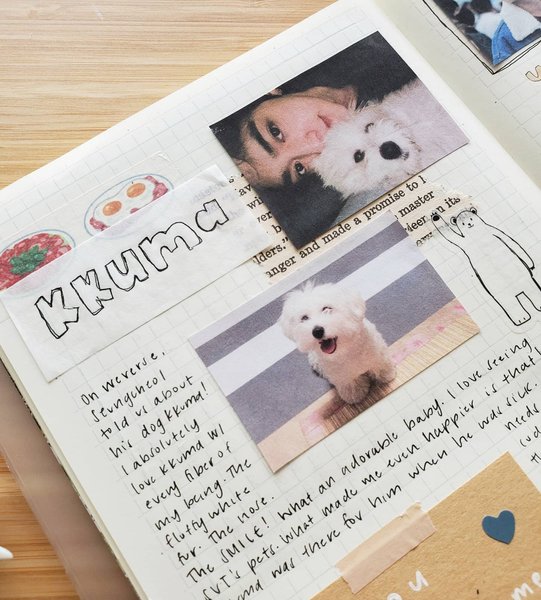 KKUMA
"
lders."
anger and made a promise to l
master
in its
On weverse,
Seungcheol
told us about
his dog kkuma!
I absolutely
love kkuma w/
every fiber of
my being. The
fluffy white
fur. The nose.
The SMILE! What an adorable baby. I love seeing
SVT's pets. What made me even happier is that
was there for him when he was sick.
needs
me